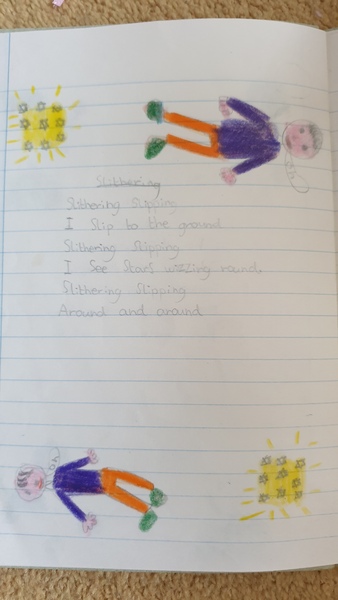 Slithering
Slithering Slipping
I Slip to the ground
Slithering Slipping
I See Stars wizzing round.
Slithering Slipping
Around and around